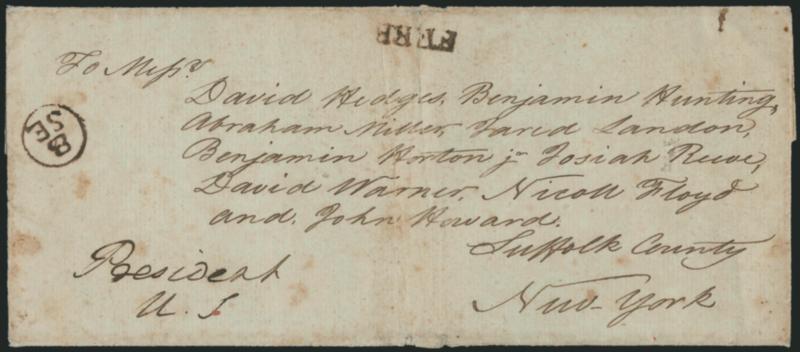 FREE
To Messrs
David Hedges, Benjamin Hunting,
Abraham Miller, Jared Landon,
Benjamin Horton jr Josiah Reeve,
David Warner, Nicoll Floyd
and John Howard.
Suffolk County
New-York
President
U. S
8 SE